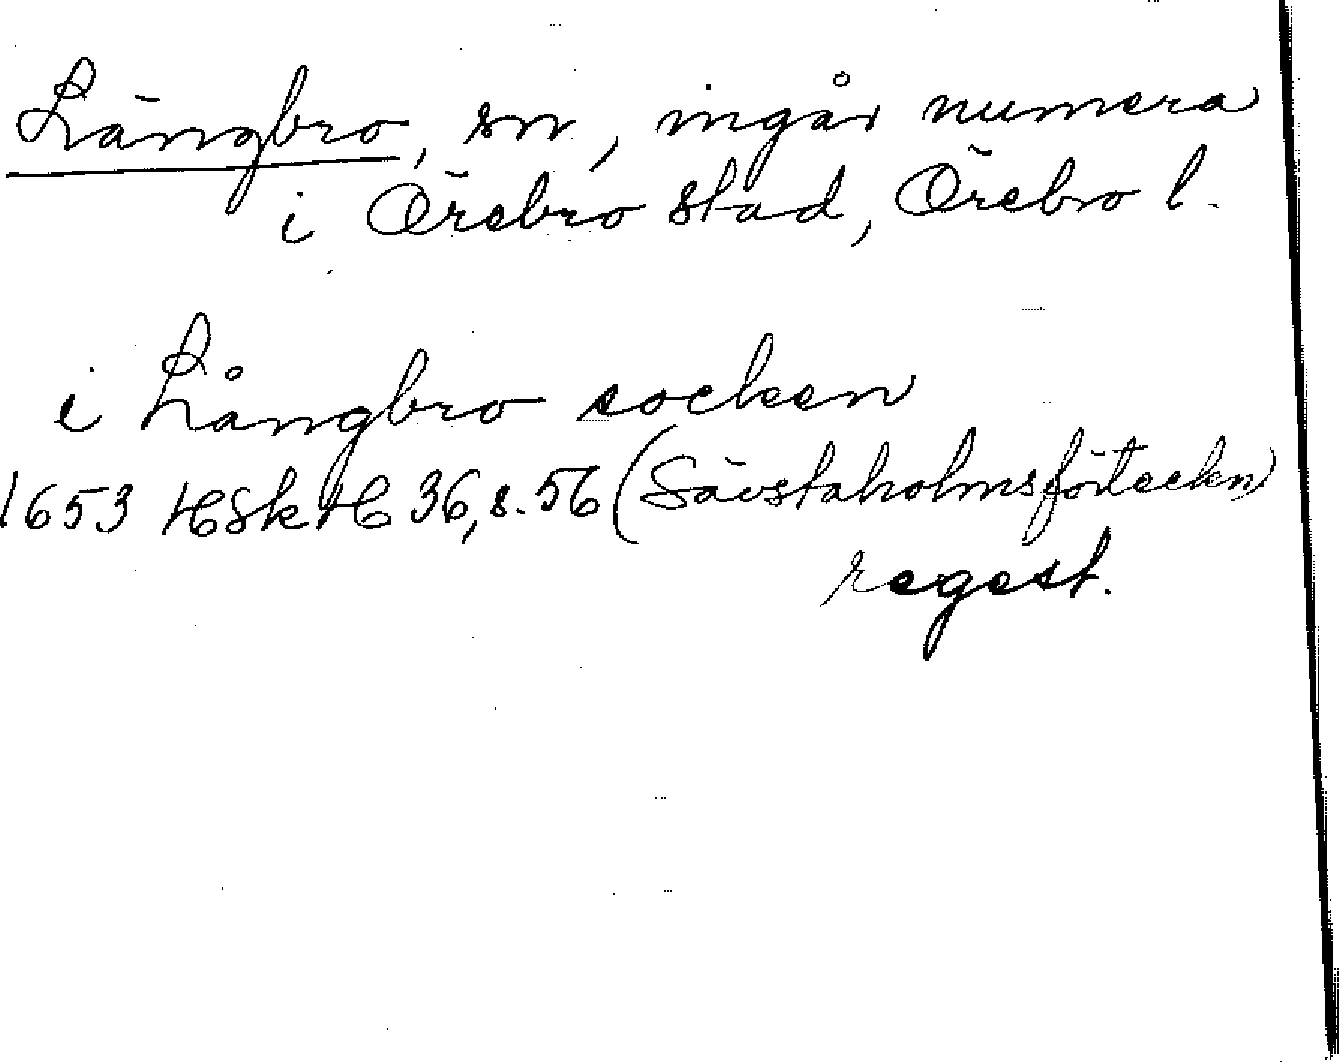 Längbro, sn, ingår numera
i Örebro stad, Örebro l.
i Långbro socken
1653 HSkH 36, s. 56 (Sävstaholmsförteckn)
regest.